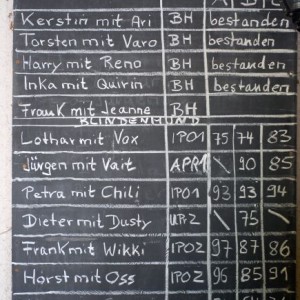 A B C
Kerstin mit Ari BH bestanden
Torsten mit Varo BH bestanden
Harry mit Reno BH bestanden
Inka mit Quirin BH bestanden
Frank mit Jeanne BH
BLINDENHUND
Lothar mit Vox IPO1 75 74 83
Jürgen mit Vait APR1 \ 90 85
Petra mit Chili IPO1 93 93 94
Dieter mit Dusty UPr2 \ 75 \
Frank mit Wikki IPO2 97 87 86
Horst mit Oss IPO2 96 85 91